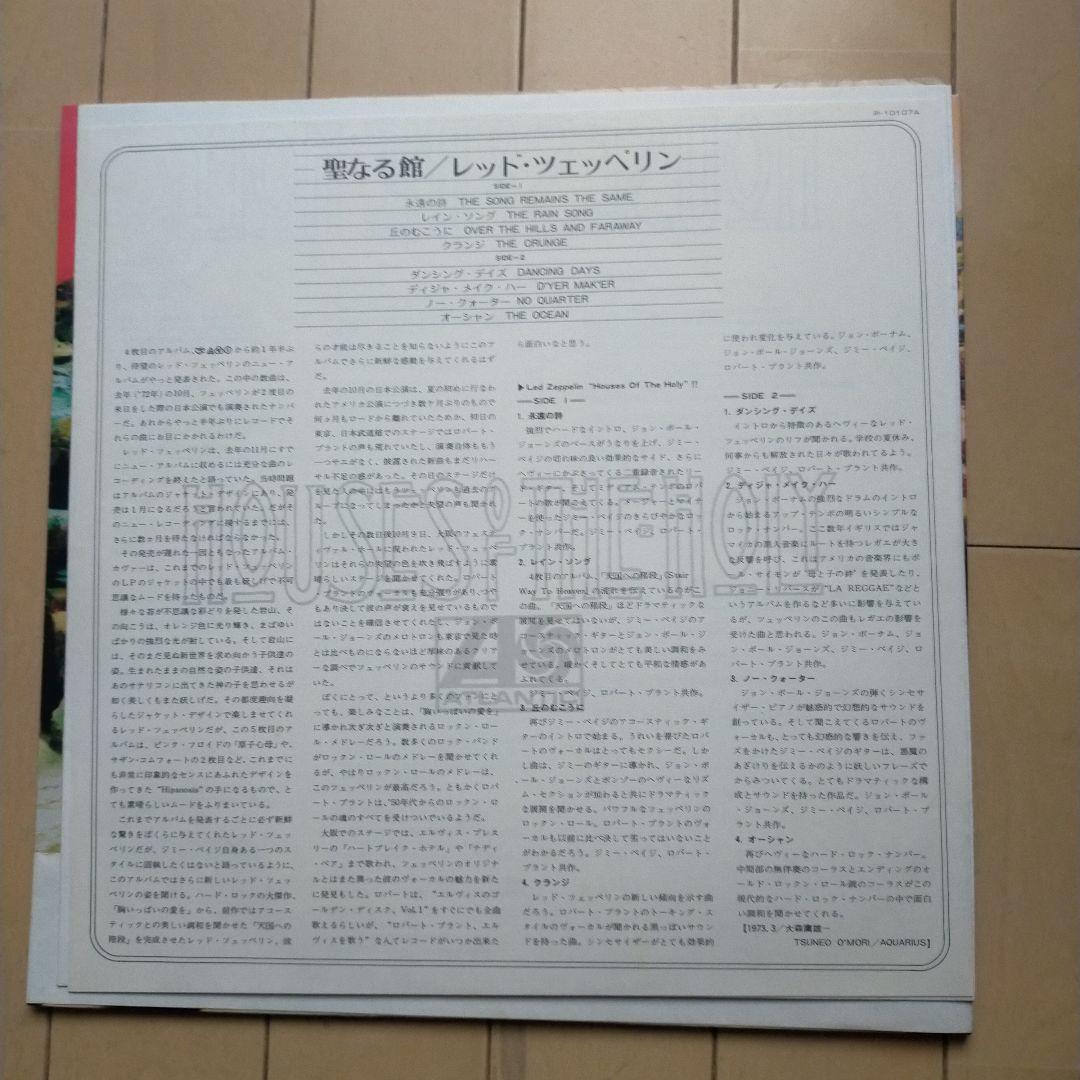 P-10107A
聖なる館/レッド・ツェッペリン
SIDE-1
永遠の詩 THE SONG REMAINS THE SAME
レイン・ソング THE RAIN SONG
丘のむこうに OVER THE HILLS AND FARAWAY
クランジ THE CRUNGE
SIDE-2
ダンシング・デイズ DANCING DAYS
ディジャ・メイク・ハー D'YER MAK'ER
ノー・クォーター NO QUARTER
オーシャン THE OCEAN
4枚目のアルバム、から約1年半ぶ
り、待望のレッド・フェッペリンのニュー・ア
ルバムがやっと発表された。この中の数曲は、
去年('72年)の10月、フェッペリンが2度目の
来日をした際の日本公演でも演奏されたナンバ
ーだ。あれからやっと半年ぶりにレコードでそ
れらの曲にお目にかかれるわけだ。
レッド・フェッペリンは、去年の11月にすで
にニュー・アルバムに収めるには充分な曲のレ
コーディングを終えたと語っていた。当時問題
はアルバムのジャケット・デザインにあり、発
売は1月になるだろうと言われていた。だがそ
のニュー・レコーディングに接するまでには、
さらに数ヶ月を待たなければならなかった。
その発売が遅れた一因ともなったアルバム・
カヴァーは、これまでのレッド・フェッペリン
のLPのジャケットの中でも最も妖しげで不可
思議なムードを持ったものだ。
様々な苔が不思議な彩どりを発した岩山、そ
の向こうは、オレンジ色に光り輝き、まばゆい
ばかりの強烈な光が射している。そして岩山に
は、そのまだ見ぬ新世界を求め向かう子供達の
姿。生まれたままの自然な姿の子供達、それは
あのサテリコンに出てきた神の子を思わせるが
如く美しくもまた妖しげだ。その都度趣向を凝
らしたジャケット・デザインで楽しませてくれ
るレッド・フェッペリンだが、この5枚目のア
ルバムは、ピンク・フロイドの「原子心母」や、
サザン・コムフォートの2枚目など、これまでに
も非常に印象的なセンスにあふれたデザインを
作ってきた "Hipanosis" の手になるもので、と
ても素晴らしいムードをふりまいている。
これまでアルバムを発表するごとに必ず新鮮
な驚きをぼくらに与えてくれたレッド・フェッ
ペリンだが、ジミー・ペイジ自身ある一つのス
タイルに固執したくはないと語っているように、
このアルバムではさらに新しいレッド・フェッ
ペリンの姿を聞ける。ハード・ロックの大傑作、
「胸いっぱいの愛を」から、前作ではアコース
ティックとの美しい調和を聞かせた「天国への
階段」を完成させたレッド・フェッペリン、彼
らの才能は尽きることを知らないようにこのア
ルバムでさらに新鮮な感動を与えてくれるはず
だ。
去年の10月の日本公演は、夏の初めに行なわ
れたアメリカ公演につづき数ヶ月ぶりのもので
何ヶ月もロードから離れていたためか、初日の
東京、日本武道館でのステージではロバート・
プラントの声も荒れていたし、演奏自体ももう
一つサエがなく、披露された新曲もまだリハー
サル不足の感があった。その日のステージだけ
を見た人の中にはもうフェッペリンも過去のグ
ループになってしまったかと失望の声も聞かれ
た。
しかしその数日後10月9日、大阪のフェステ
ィヴァル・ホールに現われたレッド・フェッペ
リンはそれらの失望の色を吹き飛ばすように素
晴らしいステージを聞かせてくれた。ロバート
・プラントのヴォーカルも充分張りがあり、つや
もあり決して彼の声が衰えを見せているもので
はないことを確信させてくれたし、ジョン・ポ
ール・ジョーンズのメロトロンも東京で見た時
とは比べものにならないほど厚味のあるクリア
ーな調べでフェッペリンのサウンドに貢献して
いた。
ぼくにとって、というより多くのファンにと
っても、楽しみなことは、「胸いっぱいの愛を」
に導かれ次ぎ次ぎと演奏されるロックン・ロー
ル・メドレーだろう。数多くのロック・バンド
がロックン・ロールのメドレーを聞かせてくれ
るが、やはりロックン・ロールのメドレーは、
このフェッペリンが最高だろう。ともかくロバ
ート・プラントは、'50年代からのロックン・ロ
ールの魂のすべてを受けついでいるようだ。
大阪でのステージでは、エルヴィス・プレス
リーの「ハートブレイク・ホテル」や「テディ
・ベア」まで歌われ、フェッペリンのオリジナ
ルとはまた異った彼のヴォーカルの魅力を新た
に発見もした。ロバートは、"エルヴィスのゴ
ールデン・ディスク、Vol.1" をすぐにでも全曲
歌えるらしいが、"ロバート・プラント、エル
ヴィスを歌う" なんてレコードがいつか出来た
ら面白いなと思う。
▶Led Zeppelin "Houses Of The Holy" !!
—SIDE 1—
1. 永遠の詩
強烈でハードなイントロ、ジョン・ポール・
ジョーンズのベースがうなりを上げ、ジミー・
ペイジの切れ味の良い効果的なサイド、さらに
ヘヴィーにかぶさってくる二重録音されたリー
ド・ギター、そしてミディアム・テンポのロバー
トの歌が聞こえてくる。メージャーとマイナ
ーを使ったジミー・ペイジのきらびやかなロッ
ク・ナンバーだ。ジミー・ペイジ、ロバート・
プラント共作。
2. レイン・ソング
4枚目のアルバム、「天国への階段」(Stair
Way To Heaven)の流れを伝えているのがこ
の曲。「天国への階段」ほどドラマティックな
展開を見せてはいないが、ジミー・ペイジのア
コースティック・ギターとジョン・ポール・ジ
ョーンズのメロトロンがとても美しい調和をみ
せている。暖かくそしてとても平和な情感があ
ふれてくる。
ジミー・ペイジ、ロバート・プラント共作。
3. 丘のむこうに
再びジミー・ペイジのアコースティック・ギ
ターのイントロで始まる。うれいを帯びたロバ
ートのヴォーカルはとってもセクシーだ。しか
し曲は、ジミーのギターに導かれ、ジョン・ポ
ール・ジョーンズとボンゾーのヘヴィーなリズ
ム・セクションが加わると共にドラマティック
な展開を聞かせる。パワフルなフェッペリンの
ロックン・ロール。ロバート・プラントのヴォ
ーカルも以前に比べ決して劣ってはいないこと
がわかるだろう。ジミー・ペイジ、ロバート・
プラント共作。
4. クランジ
レッド・フェッペリンの新しい傾向を示す曲
だろう。ロバート・プラントのトーキング・ス
タイルのヴォーカルが聞かれる黒っぽいサウン
ドを持った曲。シンセサイザーがとても効果的
に使われ変化を与えている。ジョン・ボーナム、
ジョン・ポール・ジョーンズ、ジミー・ペイジ、
ロバート・プラント共作。
—SIDE 2—
1. ダンシング・デイズ
イントロから特徴のあるヘヴィーなレッド・
フェッペリンのリフが聞かれる。学校の夏休み、
何事からも解放された日々が歌われてるよう。
ジミー・ペイジ、ロバート・プラント共作。
2. ディジャ・メイク・ハー
ジョン・ボーナムの強烈なドラムのイントロ
から始まるアップ・テンポの明るいシンプルな
ロック・ナンバー。ここ数年イギリスではジャ
マイカの黒人音楽にルートを持つレガエが大き
な反響を呼び、これはアメリカの音楽界にもポ
ール・サイモンが"母と子の絆"を発表したり、
ジョニー・リバースが"LA REGGAE"などと
いうアルバムを作るなど多いに影響を与えてい
るが、フェッペリンのこの曲もレガエの影響を
受けた曲と思われる。ジョン・ボーナム、ジョ
ン・ポール・ジョーンズ、ジミー・ペイジ、ロ
バート・プラント共作。
3. ノー・クォーター
ジョン・ポール・ジョーンズの弾くシンセサ
イザー・ピアノが魅惑的で幻想的なサウンドを
創っている。そして聞こえてくるロバートのヴ
ォーカルも、とっても幻惑的な響きを伝え、ファ
ズをかけたジミー・ペイジのギターは、悪魔の
あざけりを伝えるかのように妖しいフレーズで
からみついてくる。とてもドラマティックな構
成とサウンドを持った作品だ。ジョン・ポール
・ジョーンズ、ジミー・ペイジ、ロバート・プ
ラント共作。
4. オーシャン
再びヘヴィーなハード・ロック・ナンバー。
中間部の無伴奏のコーラスとエンディングのオ
ールド・ロックン・ロール調のコーラスがこの
現代的なハード・ロック・ナンバーの中で面白
い調和を聞かせてくれる。
【1973.3/大森庸雄—
TSUNEO O'MORI/AQUARIUS】
HOUSES OF THE HOLY
ATLANTIC